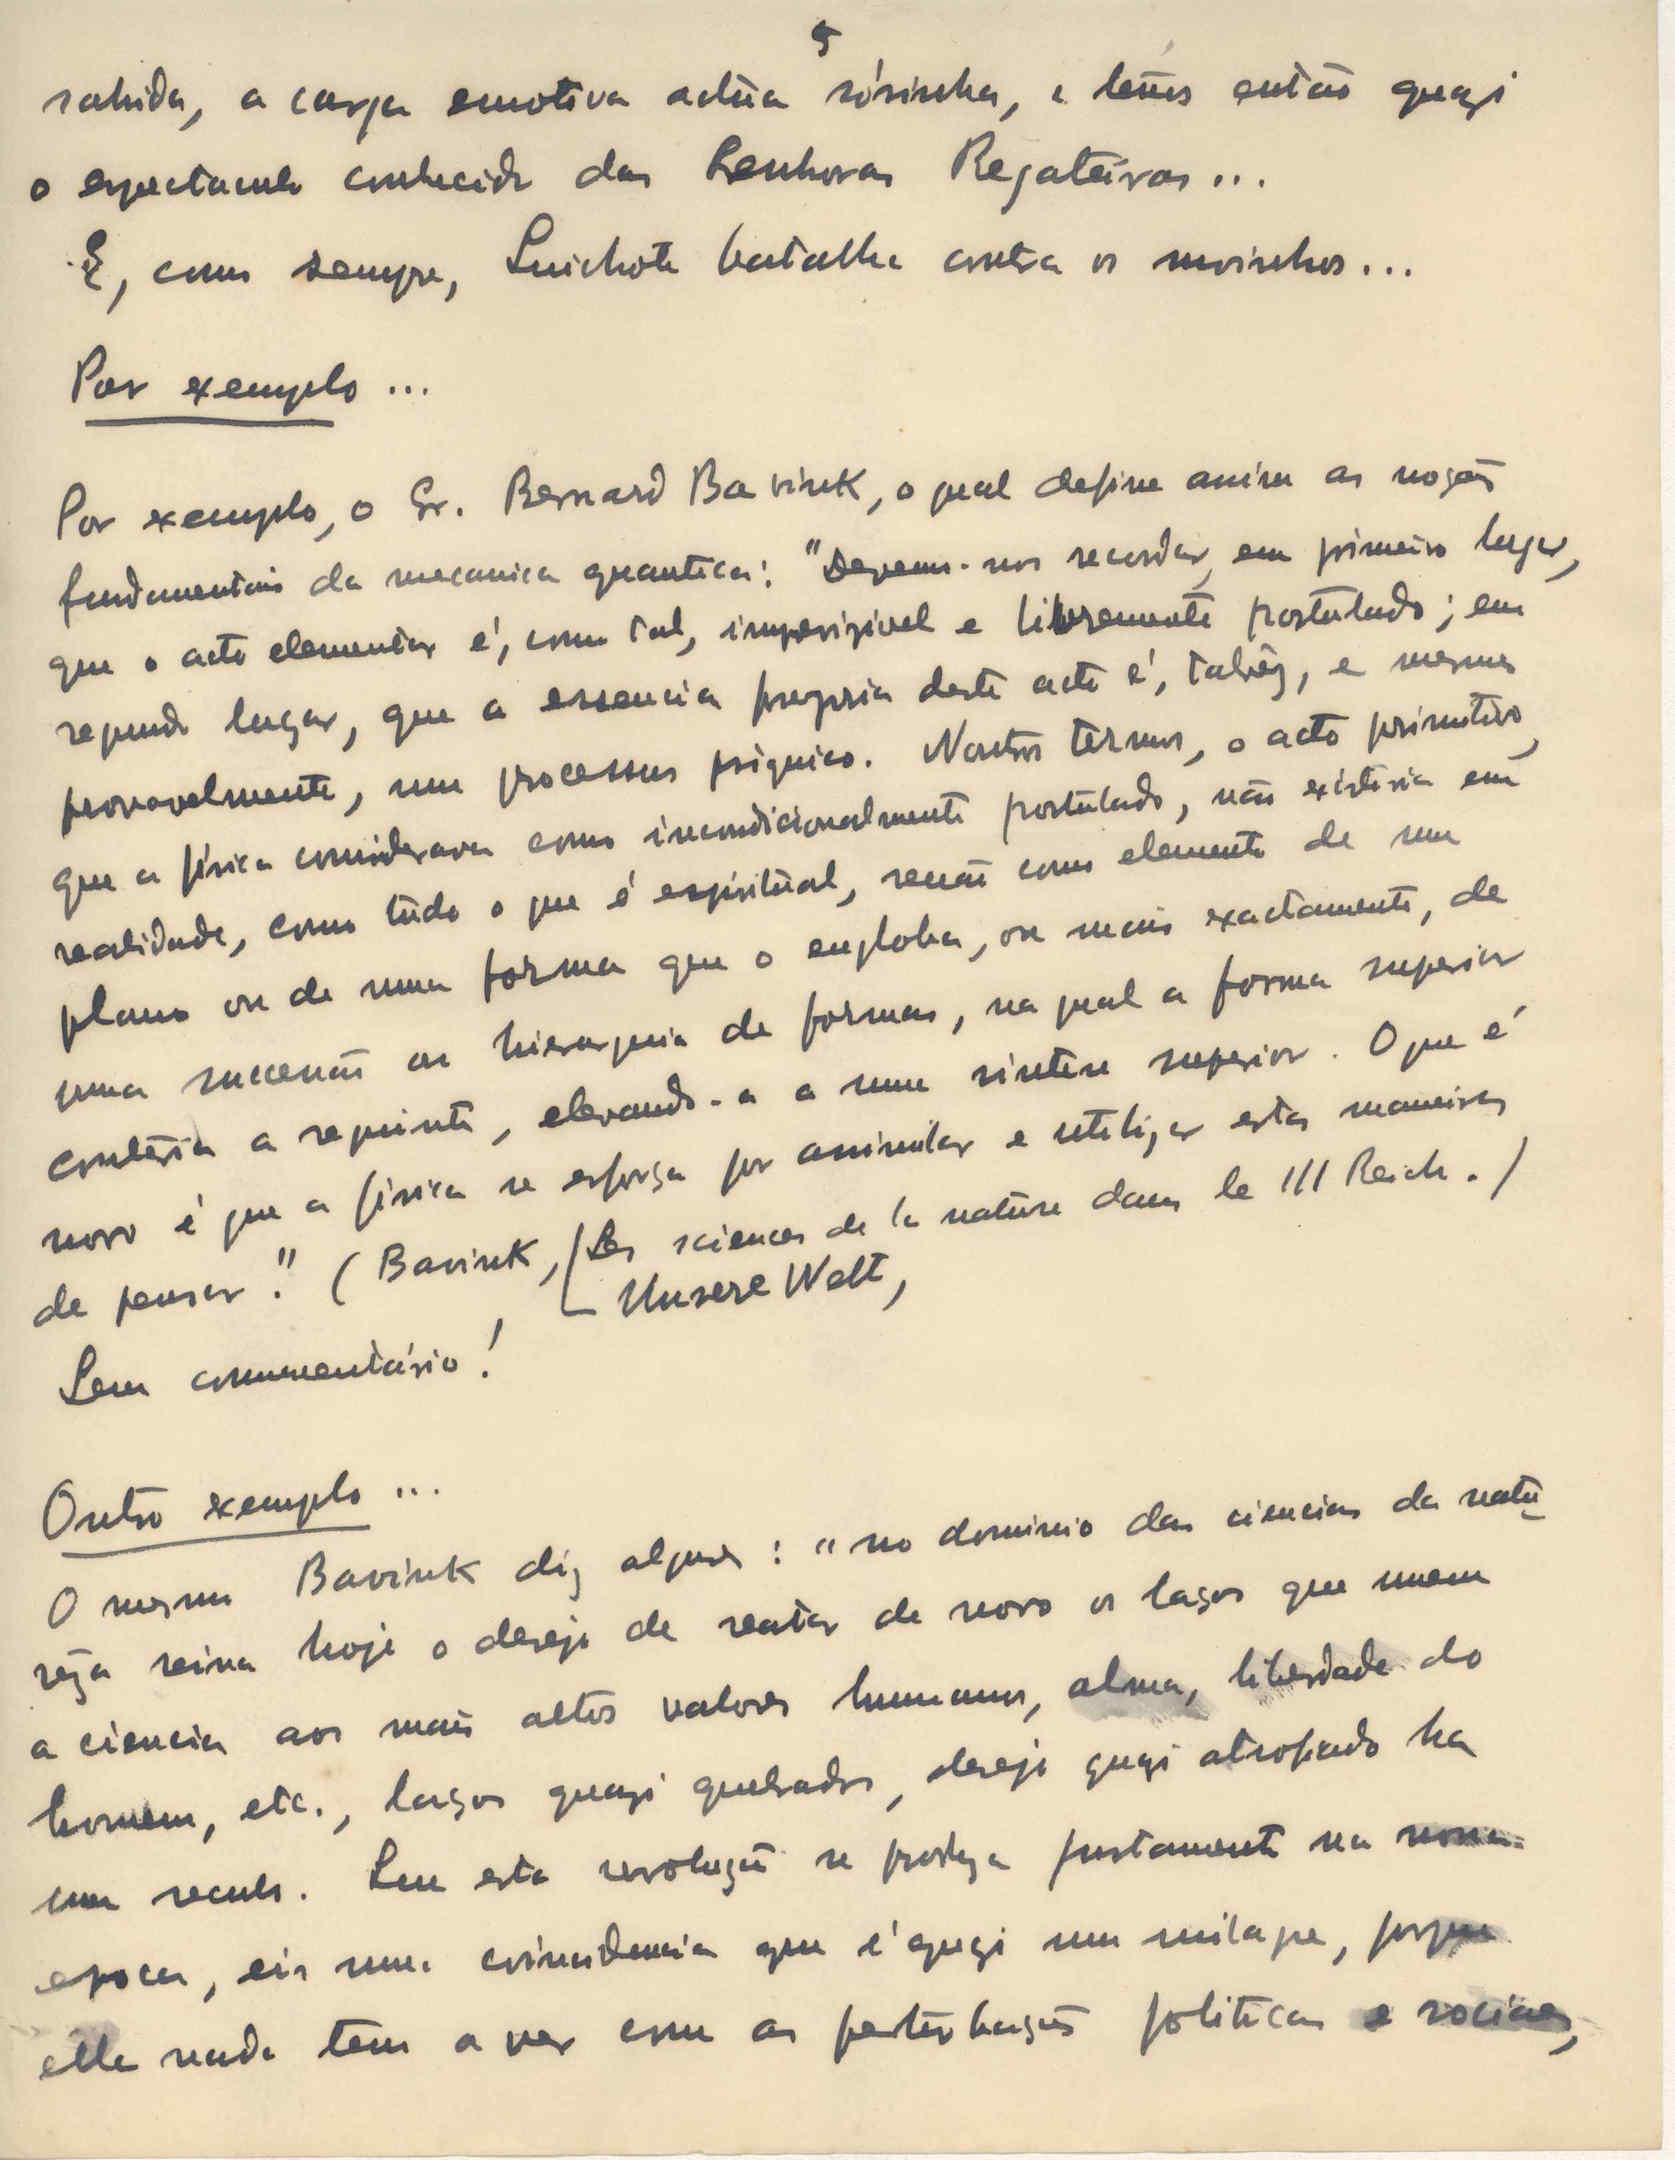 5
sahida, a carga emotiva actúa sósinha, e temos então quazi
o espectaculo conhecido das Senhoras Regateiras...
E, como sempre, Quichote batalha contra os moinhos...
Por exemplo...
Por exemplo, o Sr. Bernard Bavink, o qual define assim as noções
fundamentais da mecanica quantica: "Devemo-nos recordar, em primeiro lugar,
que o acto elementar é, como tal, imprevizivel e livremente postulado; em
segundo lugar, que a essencia propria deste acto é, talvêz, e mesmo
provavelmente, um processus psiquico. Noutros termos, o acto primitivo,
que a física considerava como incondicionalmente postulado, não existiria em
realidade, como tudo o que é espiritual, senão como elemento de um
plano ou de uma forma que o engloba, ou mais exactamente, de
uma sucessão ou hierarquia de formas, na qual a forma superior
conteria a seguinte, elevando-a a uma sintese superior. O que é
novo é que a física se esforça por assimilar e utilizar estas maneiras
de pensar." (Bavink, Les sciences de la nature dans le III Reich.)
Unsere Welt,
Sem commentário!
Outro exemplo...
O mesmo Bavink diz algures: "no dominio das ciencias da natu-
reza reina hoje o desejo de reatar de novo os laços que unem
a ciencia aos mais altos valores humanos, alma, liberdade do
homem, etc., laços quazi quebrados, desejo quazi atrofiado ha
um seculo. Que esta revolução se produza justamente na nossa
epoca, eis uma coincidencia que é quazi um milagre, porque
ella nada tem a ver com as perturbações politicas e sociaes,